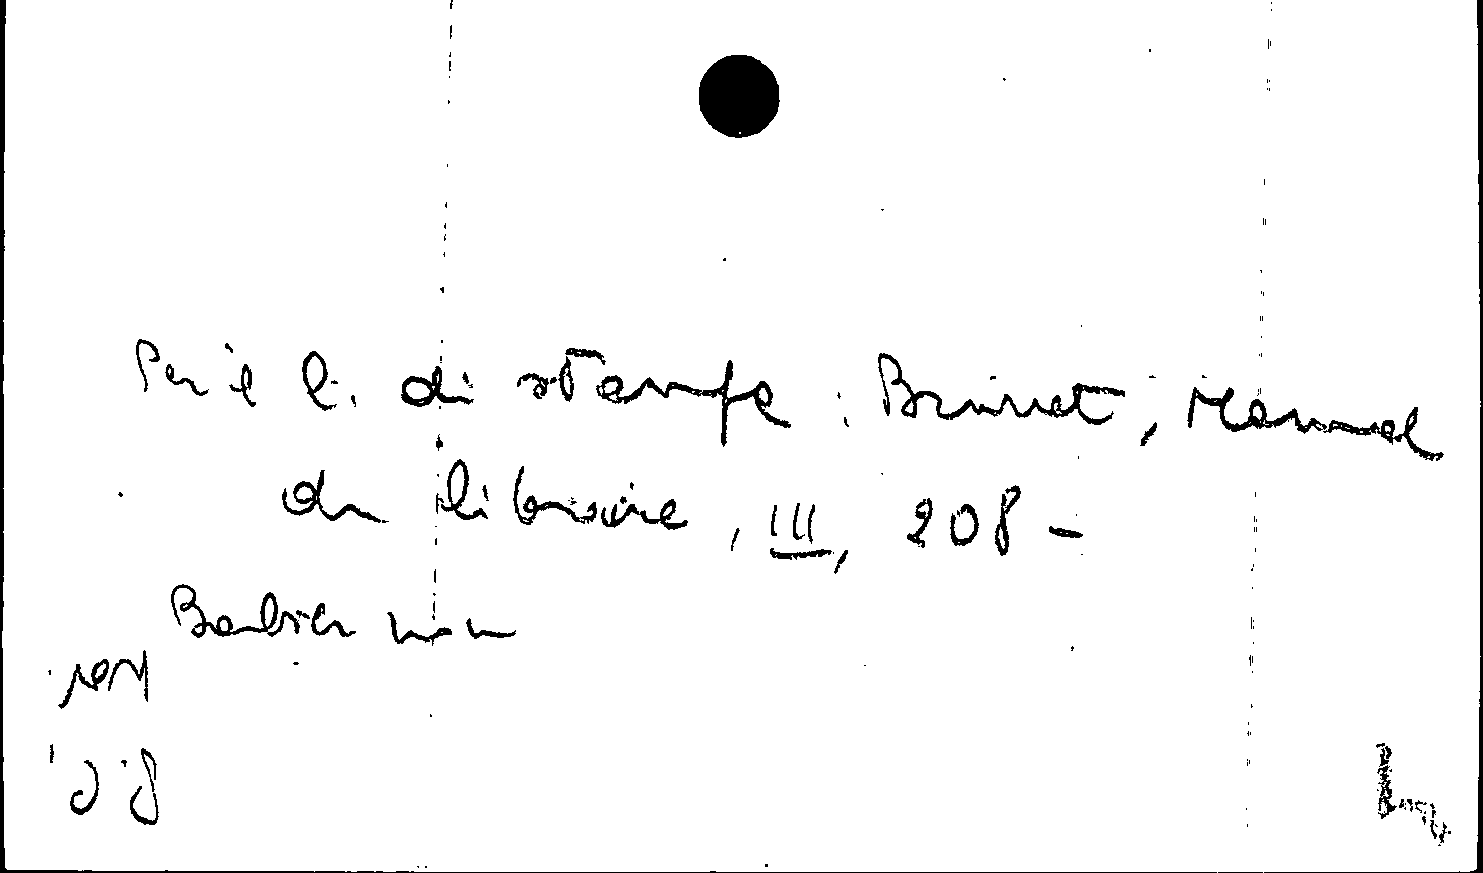 Per il l. di stampa: Brunet, Manuel
du libraire, III, 208 -
Barbier non